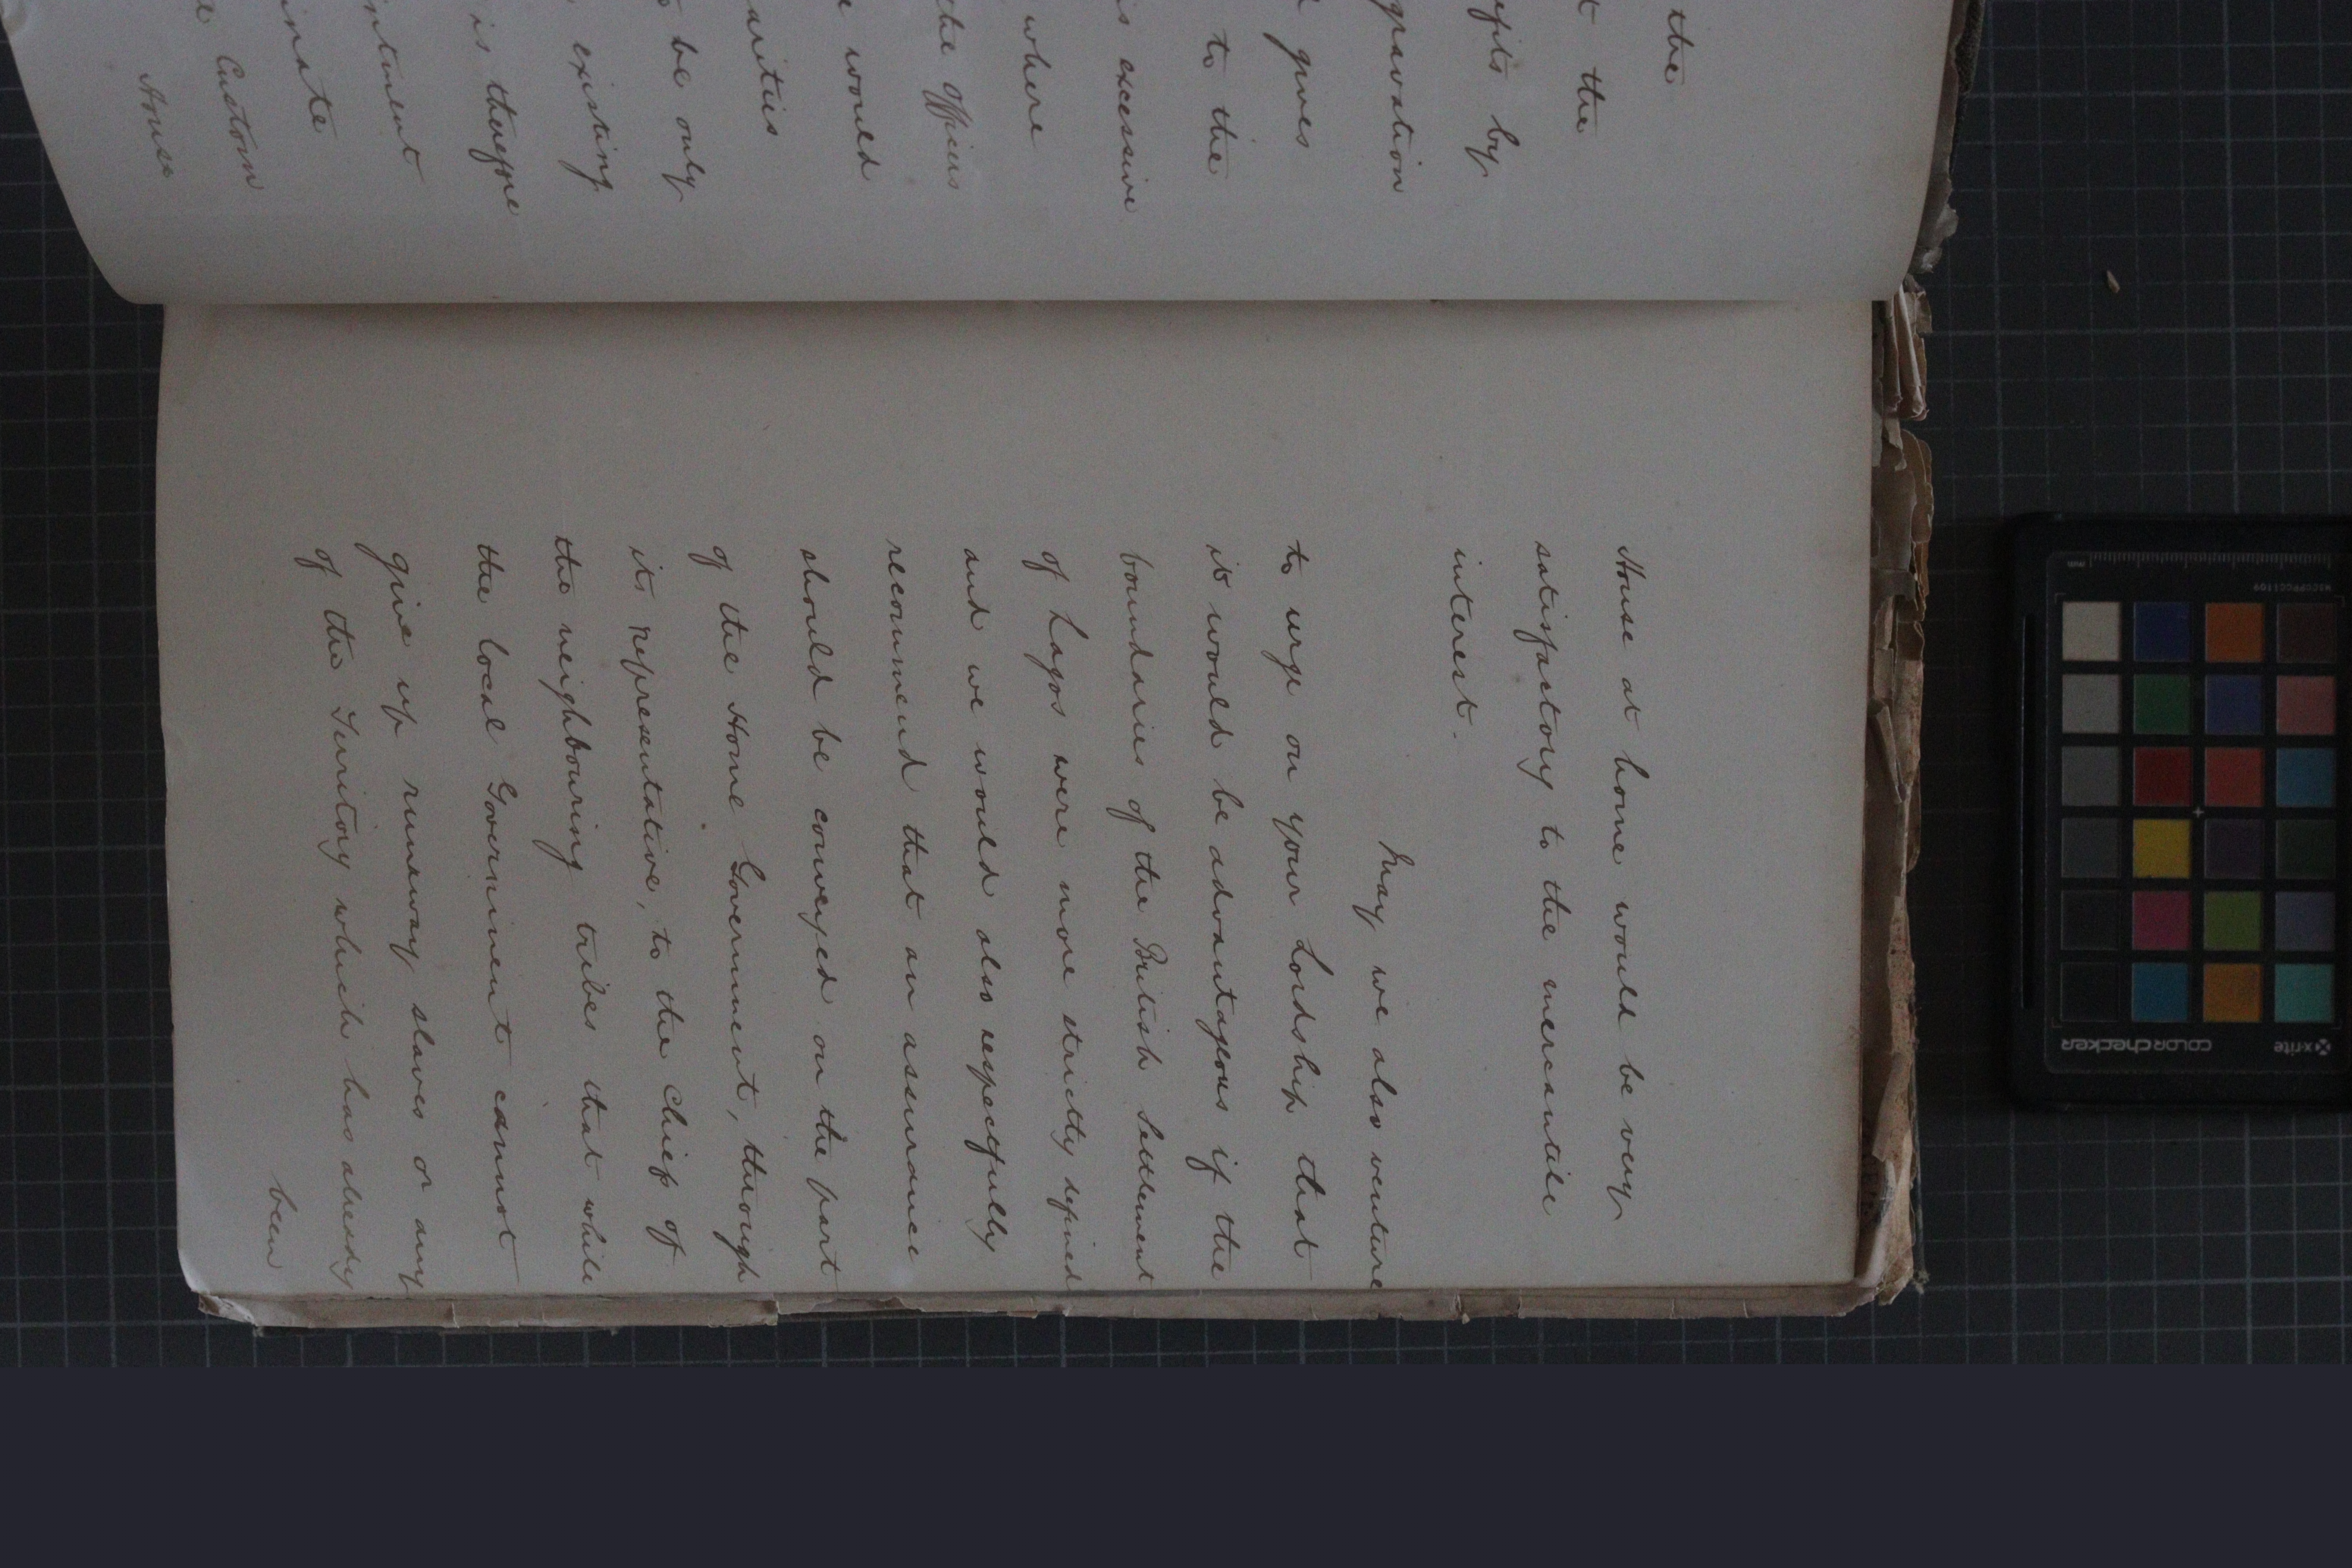 the
t the
efits by
gravation
gives
to the
is excessive
where
the Officers
would
arities
be only
existing
is therefore
intment
inate
Custom
House
House at home would be very
satisfactory to the mercantile
interest.
May we also venture
to urge on your Lordship that
it would be advantageous if the
boundaries of the British Settlement
of Lagos were more strictly defined
and we would also respectfully
recommend that an assurance
should be conveyed on the part
of the Home Government, through
its representative, to the Chiefs of
the neighbouring tribes that while
the local Government cannot
give up runaway slaves or any
of the Territory which has already
been
mm
x-rite
colorchecker